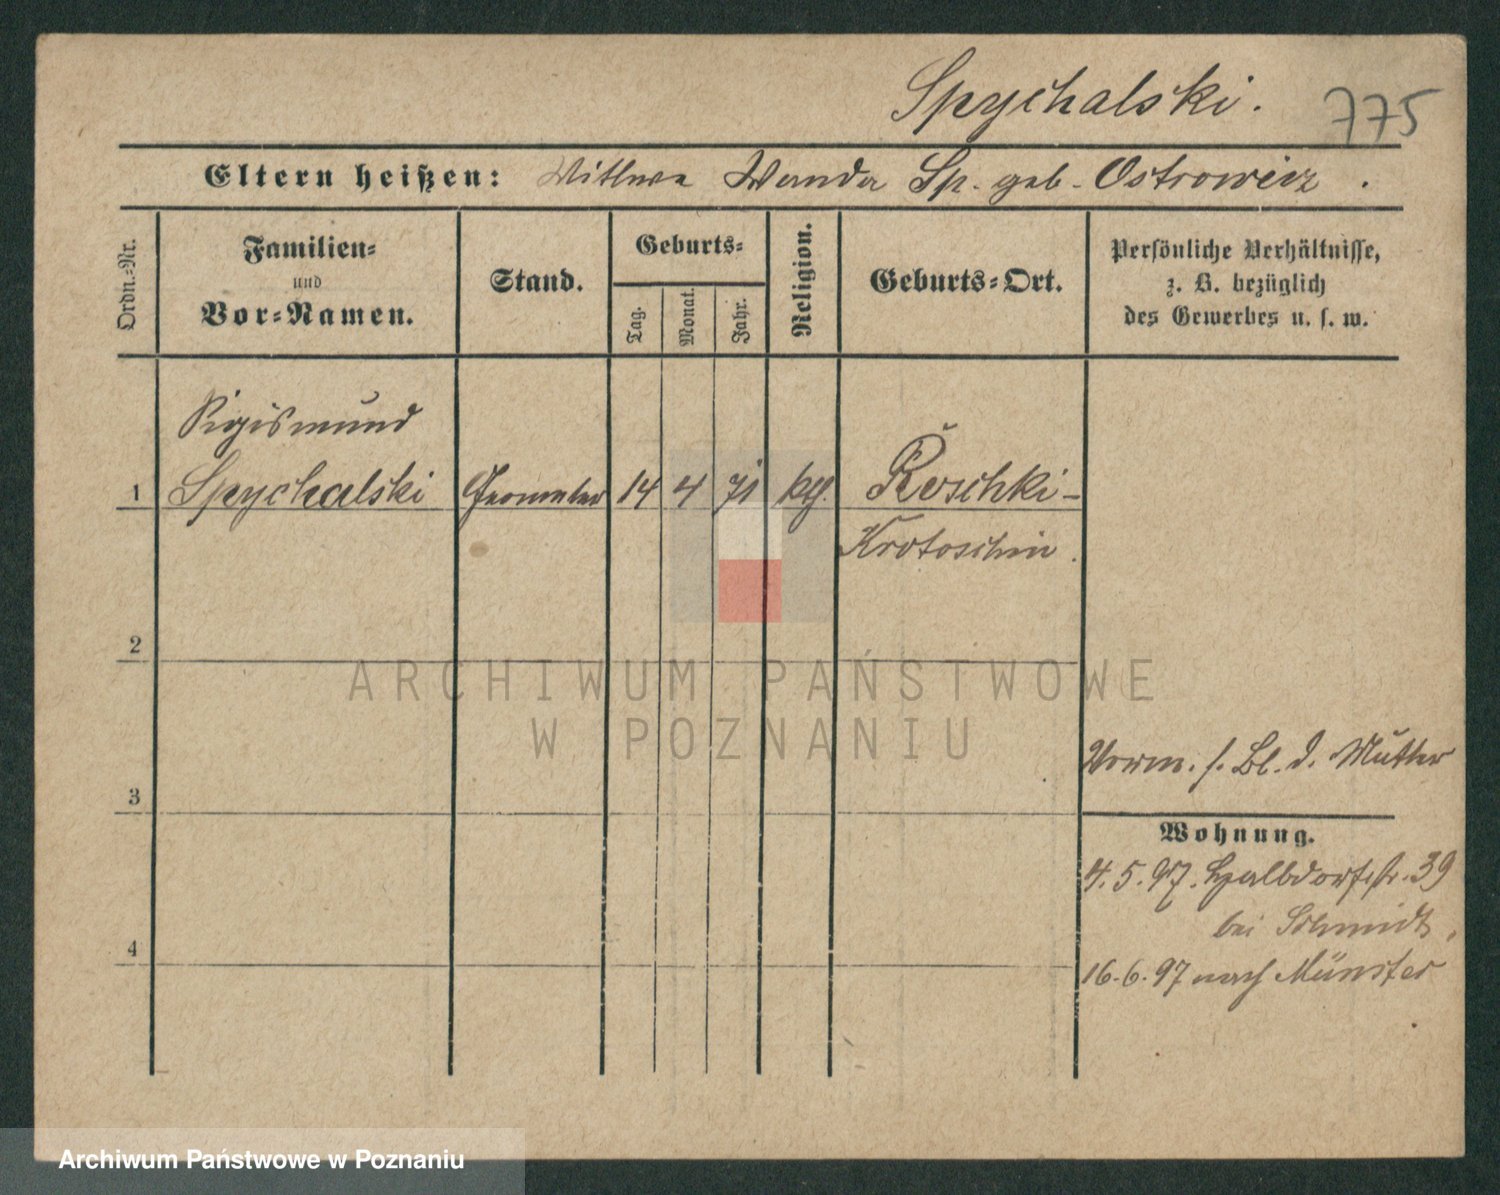 Spychalski.
775
Eltern heißen: Wittwe Wanda Sp. geb. Ostrowicz.
Ordn.-Nr.
Familien-
und
Vor-Namen.
Stand.
Geburts-
Tag.
Monat.
Jahr.
Religion.
Geburts-Ort.
Persönliche Verhältnisse,
z. B. bezüglich
des Gewerbes u. s. w.
Sigismund
1 Spychalski Geometer 14 4 71 kth. Roschki-
Krotoschin.
2
Vorm. s. Bl. d. Mutter
3
Wohnung.
4.5.97. Halbdorfstr. 39
bei Schmidt,
4
16.6.97 nach Münster
ARCHIWUM PAŃSTWOWE
W POZNANIU
Archiwum Państwowe w Poznaniu